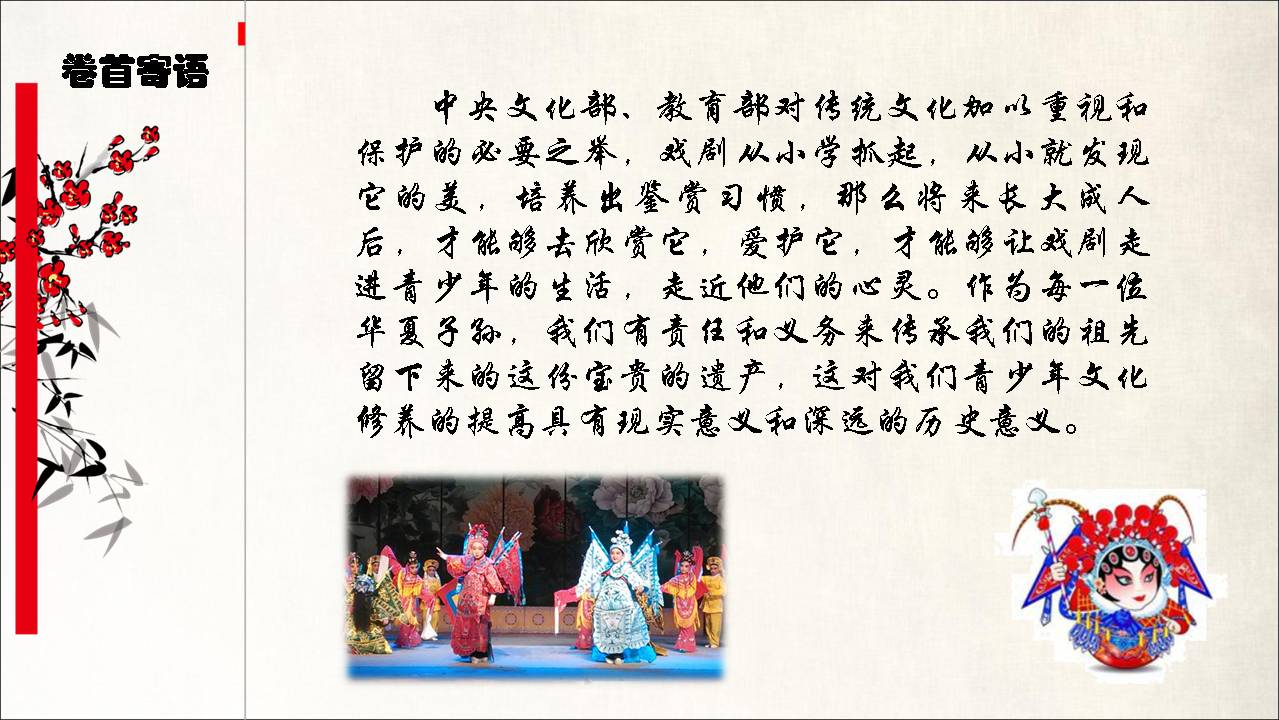 卷首寄语
中央文化部、教育部对传统文化加以重视和
保护的必要之举，戏剧从小学抓起，从小就发现
它的美，培养出鉴赏习惯，那么将来长大成人
后，才能够去欣赏它，爱护它，才能够让戏剧走
进青少年的生活，走近他们的心灵。作为每一位
华夏子孙，我们有责任和义务来传承我们的祖先
留下来的这份宝贵的遗产，这对我们青少年文化
修养的提高具有现实意义和深远的历史意义。